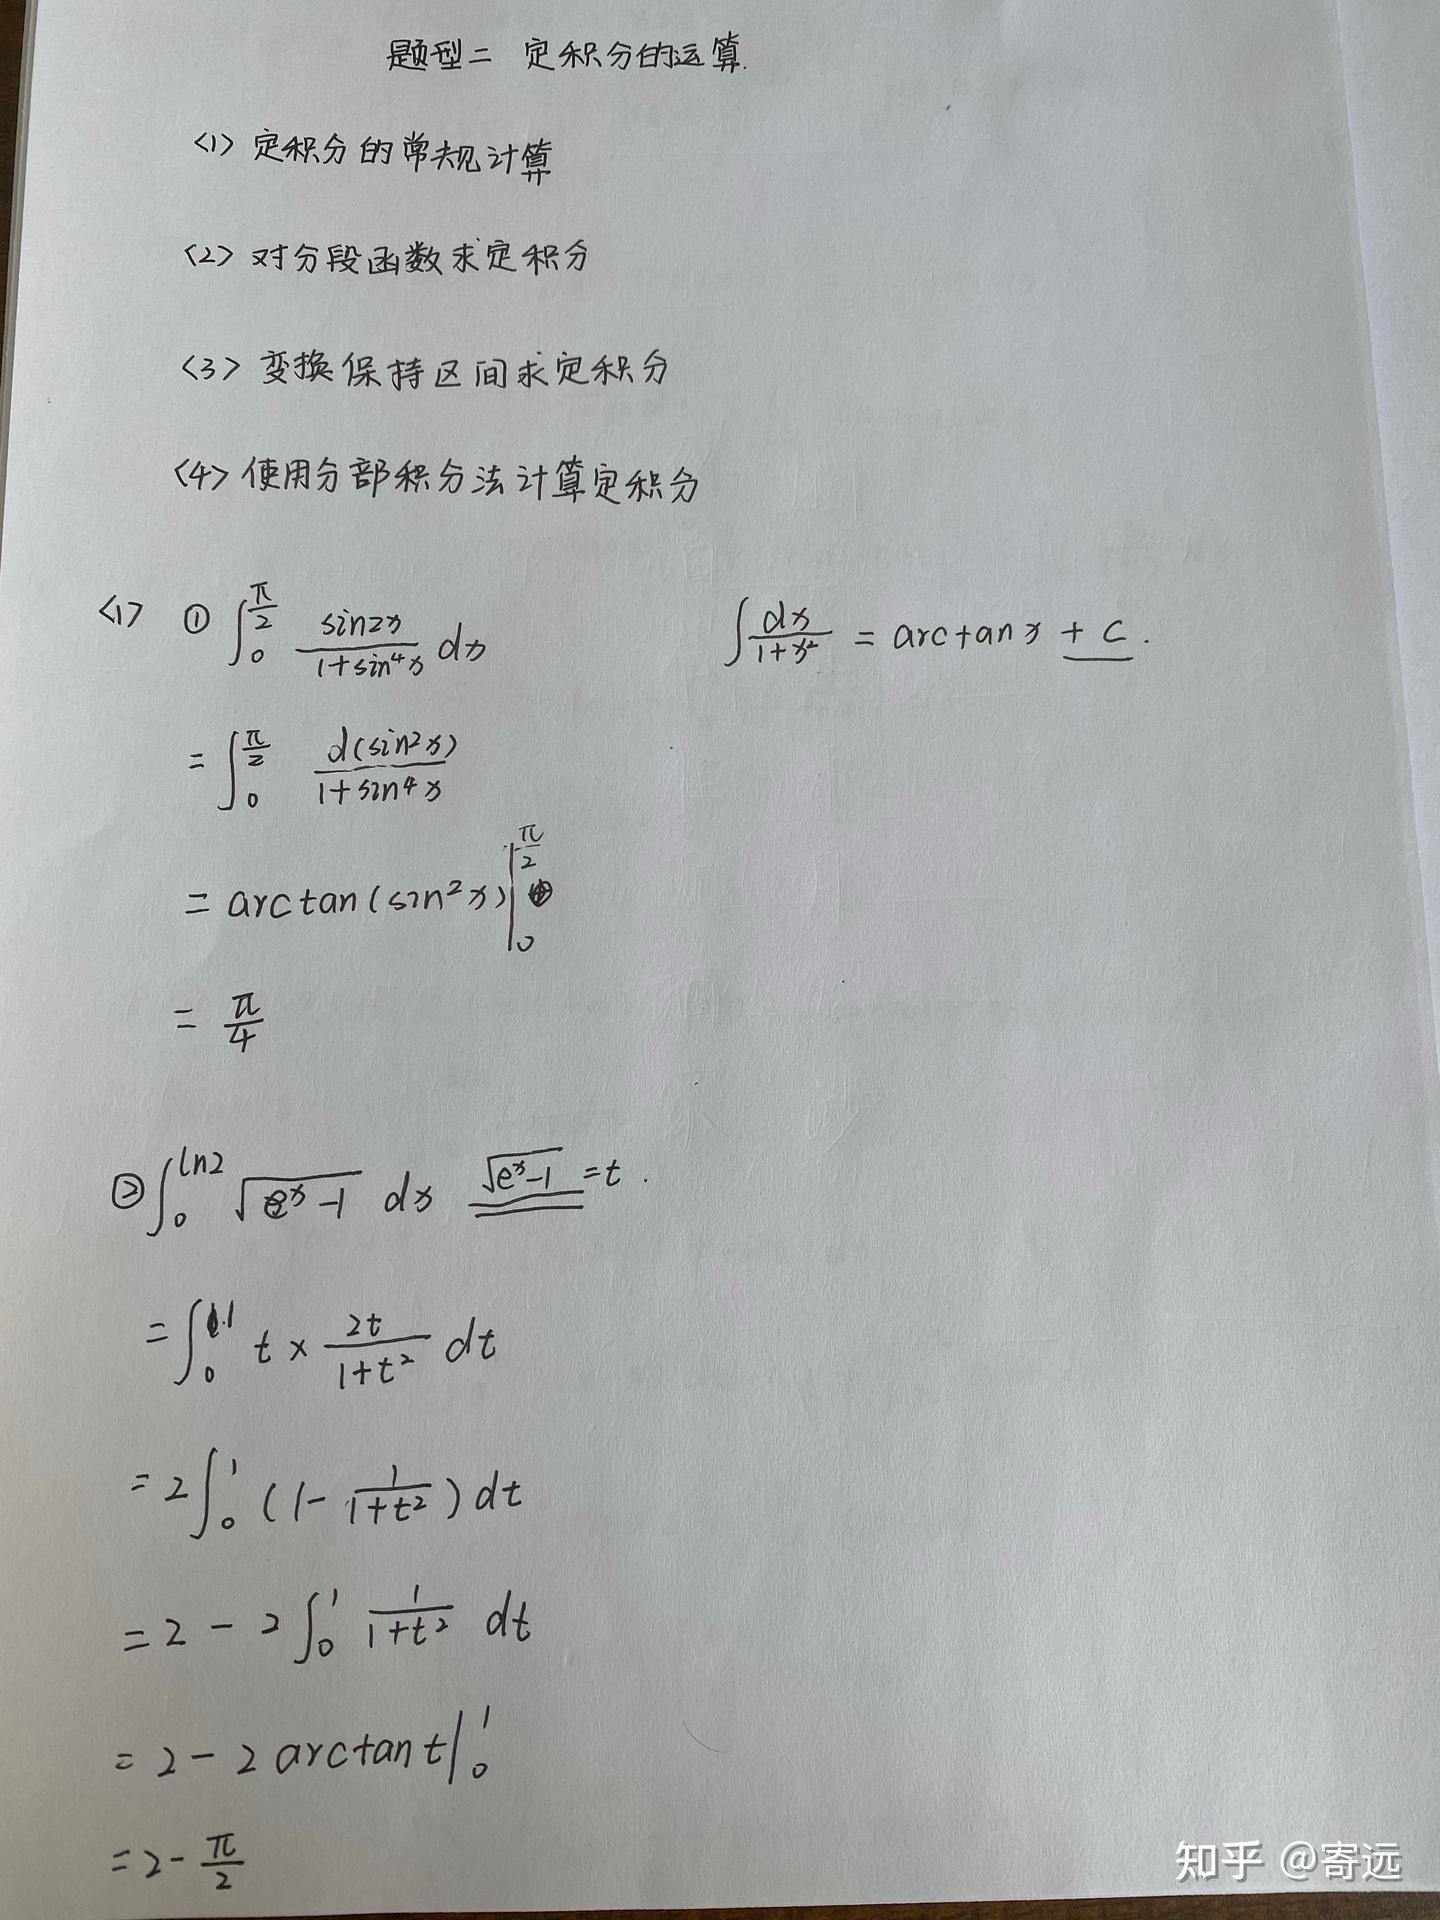 题型二 定积分的运算.
<1> 定积分的常规计算
<2> 对分段函数求定积分
<3> 变换保持区间求定积分
<4> 使用分部积分法计算定积分
<1> ① ∫₀^(π/2) sin2x/(1+sin⁴x) dx
∫ dx/(1+x²) = arctan x + C.
= ∫₀^(π/2) d(sin²x)/(1+sin⁴x)
= arctan(sin²x)|₀^(π/2)
= π/4
② ∫₀^(ln2) √(eˣ-1) dx √(eˣ-1) = t.
= ∫₀^1 t × 2t/(1+t²) dt
= 2∫₀^1 (1 - 1/(1+t²)) dt
= 2 - 2∫₀^1 1/(1+t²) dt
= 2 - 2 arctan t|₀^1
= 2 - π/2
知乎 @寄远